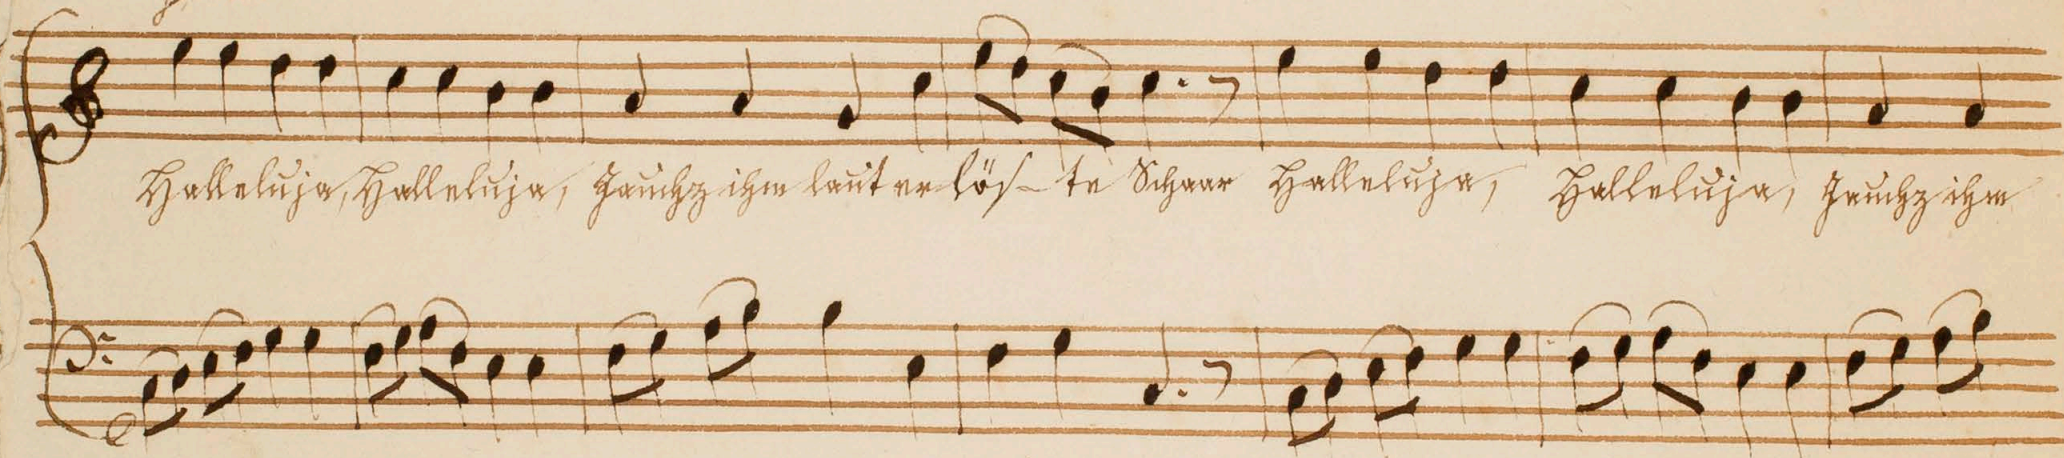 Halleluja, Halleluja, Jauchz ihm laut er lös - te Schaar Halleluja, Halleluja, Jauchz ihm